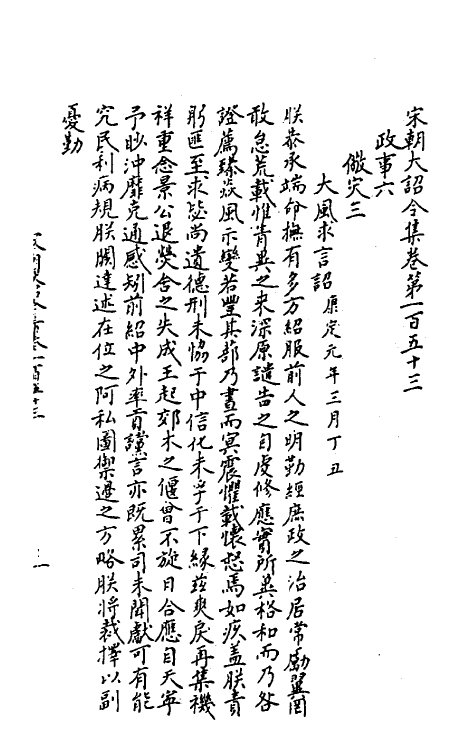 宋朝大詔令集卷第一百五十三
政事六
儆灾三
大風求言詔康定元年三月丁丑
朕恭承端命撫有多方紹服前人之明勤經庶政之治居常勵翼罔
敢怠荒載惟眚異之来深原譴告之自虔修應實所兾格和而乃咎
證薦臻焱風示變若豐其蔀乃晝而冥震懼載懐怒焉如疾盖朕責
躬匪至求愆尚遺德刑未恊于中信化未孚于下緣兹爽戾再集禨
祥重念景公退熒舍之失成王起郊木之偃曾不旋日合應自天寜
予眇沖靡克通感矧前紹中外率貢讜言亦既累司未聞獻可有能
究民利病規朕闕違述在位之阿私圖禦邊之方略朕將裁擇以副
憂勤
宋朝大詔令集卷一百五十三
一